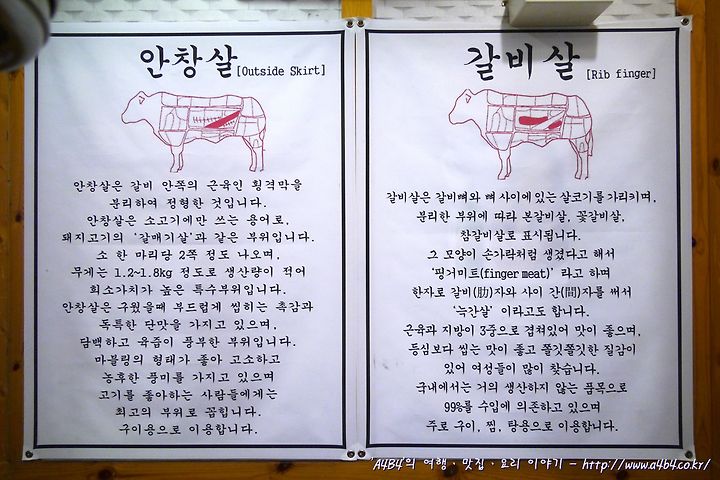 안창살[Outside Skirt]
안창살은 갈비 안쪽의 근육인 횡격막을
분리하여 정형한 것입니다.
안창살은 소고기에만 쓰는 용어로,
돼지고기의 '갈매기살'과 같은 부위입니다.
소 한 마리당 2쪽 정도 나오며,
무게는 1.2~1.8kg 정도로 생산량이 적어
희소가치가 높은 특수부위입니다.
안창살은 구웠을때 부드럽게 씹히는 촉감과
독특한 단맛을 가지고 있으며,
담백하고 육즙이 풍부한 부위입니다.
마블링의 형태가 좋아 고소하고
농후한 풍미를 가지고 있으며
고기를 좋아하는 사람들에게는
최고의 부위로 꼽힙니다.
구이용으로 이용합니다.
갈비살 [Rib finger]
갈비살은 갈비뼈와 뼈 사이에 있는 살코기를 가리키며,
분리한 부위에 따라 본갈비살, 꽃갈비살,
참갈비살로 표시됩니다.
그 모양이 손가락처럼 생겼다고 해서
'핑거미트(finger meat)' 라고 하며
한자로 갈비(肋)자와 사이 간(間)자를 써서
'늑간살' 이라고도 합니다.
근육과 지방이 3중으로 겹쳐있어 맛이 좋으며,
등심보다 씹는 맛이 좋고 쫄깃쫄깃한 질감이
있어 여성들이 많이 찾습니다.
국내에서는 거의 생산하지 않는 품목으로
99%를 수입에 의존하고 있으며
주로 구이, 찜, 탕용으로 이용합니다.
'A4B4'의 여행·맛집·요리 이야기 - http://www.a4b4.co.kr/